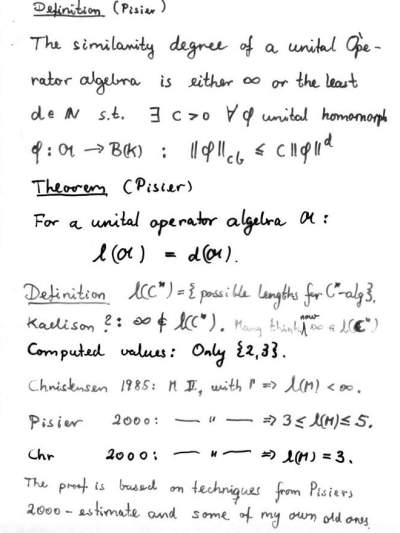 Definition (Pisier)
The similarity degree of a unital Ope-
rator algebra is either ∞ or the least
d ∈ N s.t. ∃ C > 0 ∀ φ unital homomorph
φ : 𝒜 → B(K) : ||φ||cb ≤ C||φ||^d
Theorem (Pisier)
For a unital operator algebra 𝒜 :
l(𝒜) = d(𝒜).
Definition l(C*) = { possible lengths for C*-alg}.
Kadison ?: ∞ ∉ l(C*). Many think now ∞ ∈ l(C*)
Computed values: Only {2,3}.
Christensen 1985: M II, with Γ => l(M) < ∞.
Pisier 2000: — " — => 3 ≤ l(M) ≤ 5.
Chr 2000: — " — => l(M) = 3.
The proof is based on techniques from Pisiers
2000 - estimate and some of my own old ones